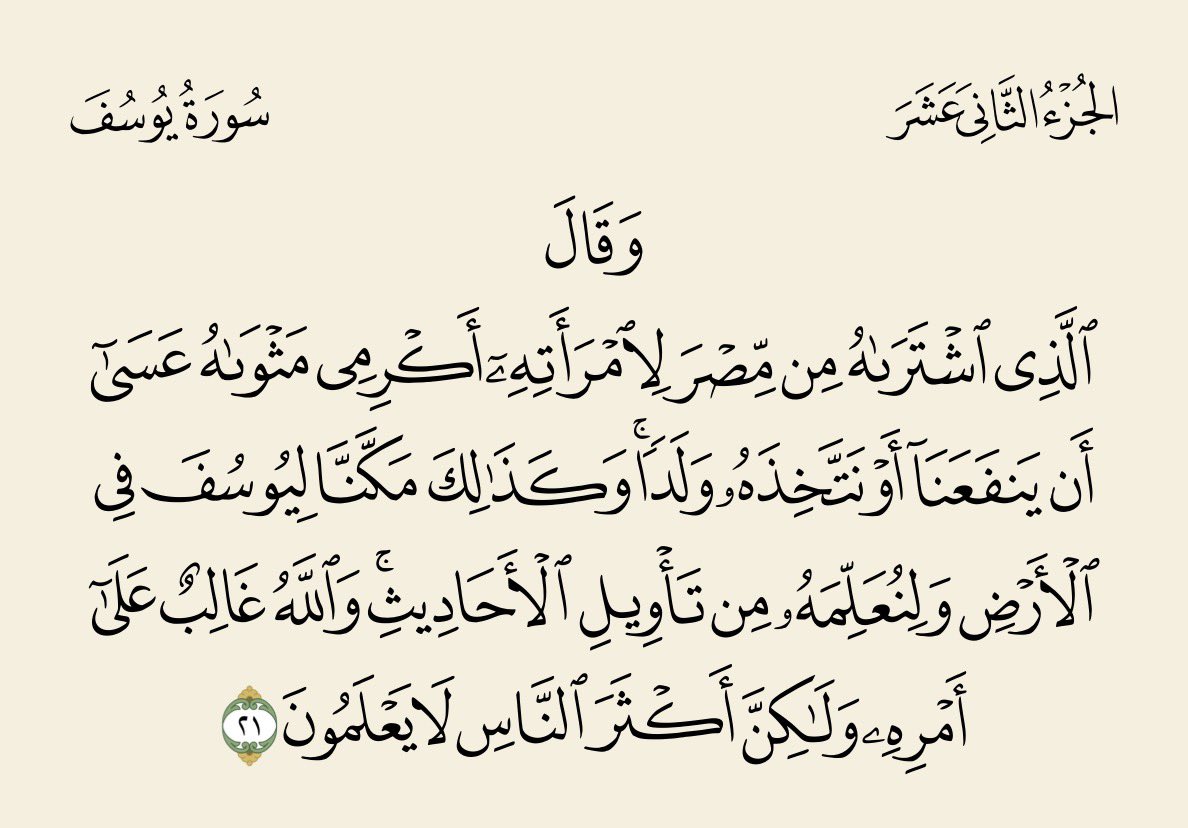 الجُزْءُ الثَّانِيَ عَشَرَ
سُورَةُ يُوسُفَ
وَقَالَ
ٱلَّذِى ٱشْتَرَىٰهُ مِن مِّصْرَ لِٱمْرَأَتِهِۦٓ أَكْرِمِى مَثْوَىٰهُ عَسَىٰٓ
أَن يَنفَعَنَآ أَوْ نَتَّخِذَهُۥ وَلَدًا ۚ وَكَذَٰلِكَ مَكَّنَّا لِيُوسُفَ فِى
ٱلْأَرْضِ وَلِنُعَلِّمَهُۥ مِن تَأْوِيلِ ٱلْأَحَادِيثِ ۚ وَٱللَّهُ غَالِبٌ عَلَىٰٓ
أَمْرِهِۦ وَلَٰكِنَّ أَكْثَرَ ٱلنَّاسِ لَا يَعْلَمُونَ ٢١